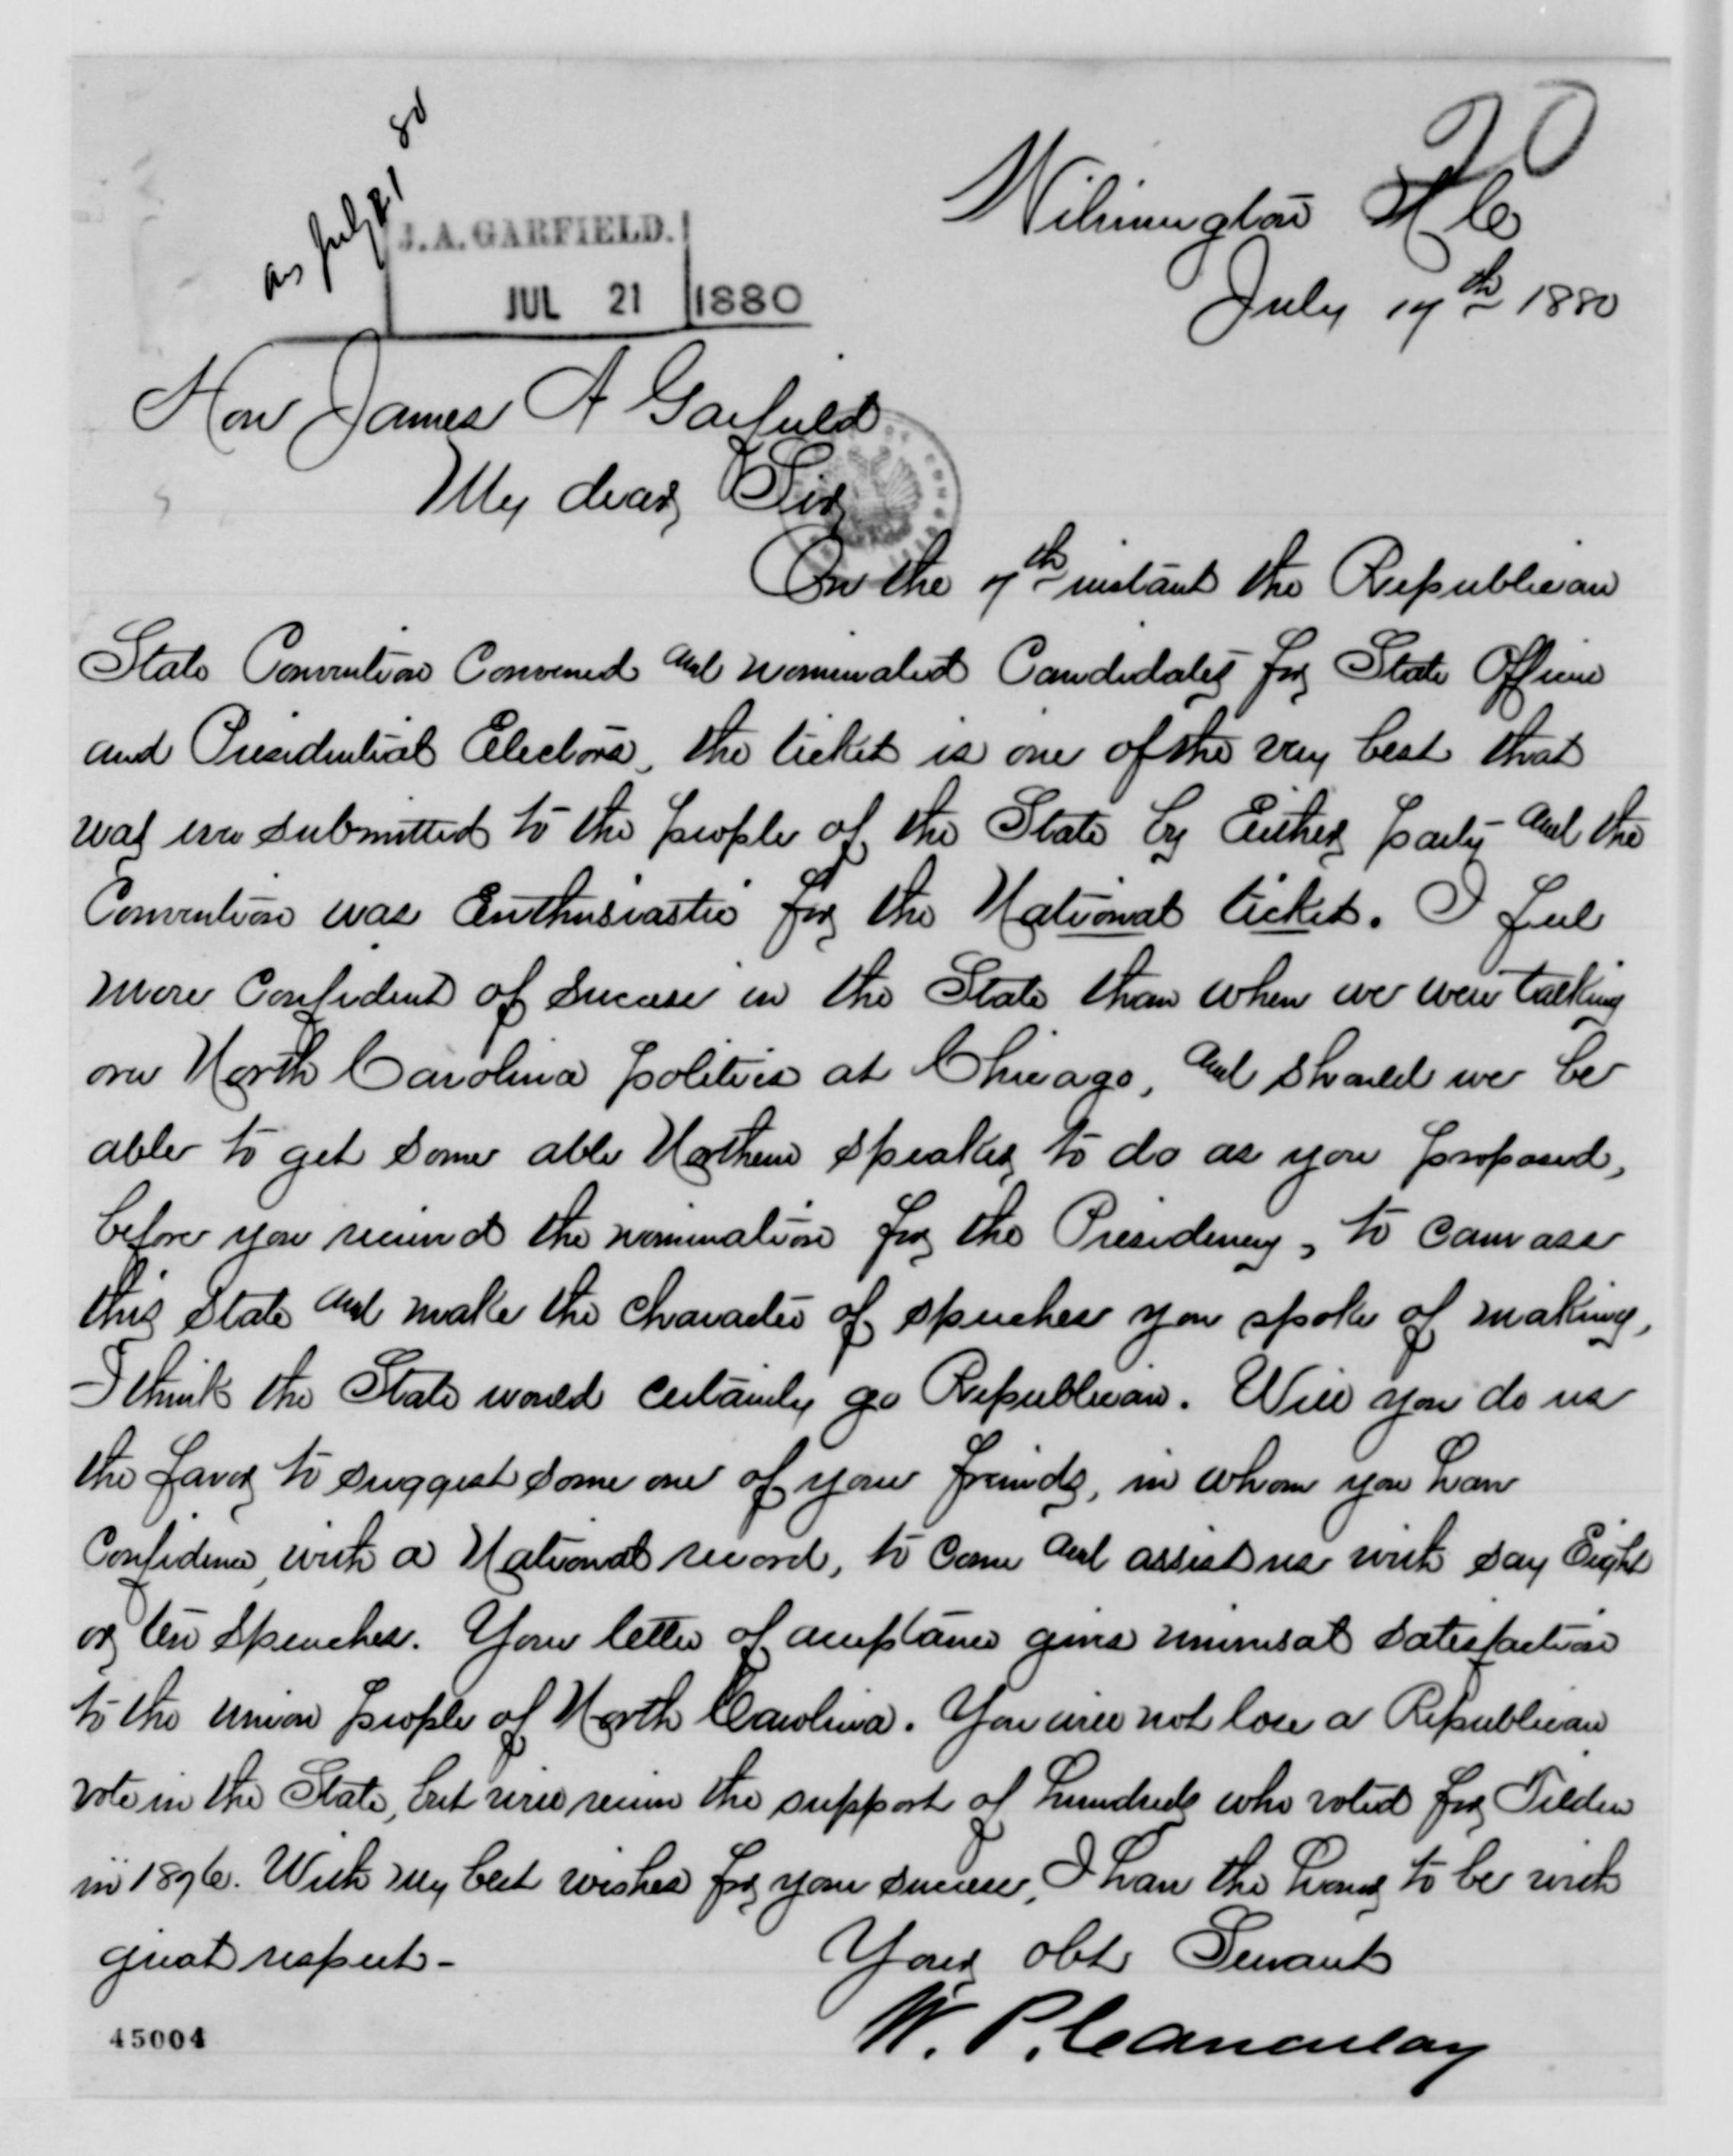 20
ans July 21 80
J. A. GARFIELD.
JUL 21 1880
Wilmington N C
July 17th 1880
Hon James A Garfield
My dear Sir
On the 7th instant the Republican
State Convention Convened and nominated Candidates for State Officers
and Presidential Electors, the ticket is one of the very best that
was ever submitted to the people of the State by Either party and the
Convention was Enthusiastic for the National ticket. I feel
more Confident of success in the State than when we were talking
over North Carolina politics at Chicago, and should we be
able to get some able Northern speaker to do as you proposed,
before you received the nomination for the Presidency, to canvass
this State and make the character of speeches you spoke of making,
I think the State would certainly go Republican. Will you do us
the favor to suggest some one of your friends, in whom you have
Confidence, with a National record, to come and assist us with say Eight
or ten speeches. Your letter of acceptance gives universal satisfaction
to the union people of North Carolina. You will not lose a Republican
vote in the State, but will receive the support of hundreds who voted for Tilden
in 1876. With my best wishes for your success, I have the honor to be with
great respect-
Your obt Servant
W. P. Canaday
45004